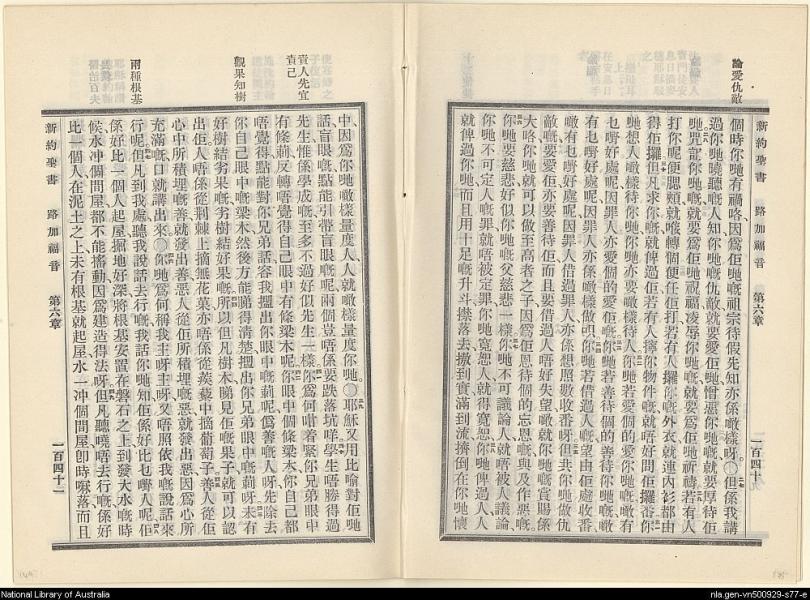 新約聖書 路加福音 第六章 一百四十一
論愛仇敵
個時你哋有禍咯因爲佢哋嘅祖宗待假先知亦係噉樣呀○但係我講
過你哋曉聽嘅人知你哋嘅仇敵就要愛佢哋憎惡你哋嘅就要厚待佢
哋咒詛你哋嘅就要爲佢哋祝福凌辱你哋嘅就要爲佢哋祈禱若有人
打你呢便腮頰就嗱轉個便任佢打若有人攞你嘅外衣就連內衫都由
得佢攞但凡求你嘅就俾過佢若有人擰你物件嘅就唔好問佢攞番你
哋想人噉樣待你哋你哋亦要噉樣待人你哋若愛個的愛你哋嘅噉有
乜嘢好處呢因罪人亦愛個的愛佢嘅你哋若善待個的善待你哋嘅噉
有乜嘢好處呢因罪人亦係噉樣做呮你哋若借過人嘅望由佢處收番
噉有乜嘢好處呢因罪人借過罪人亦係想照數收番呀但共你哋做仇
敵嘅要愛佢亦要善待佢而且要借過人唔好失望噉就你哋嘅賞賜係
大咯你哋就可以做至高者之子因爲佢恩待個的忘恩嘅與及作惡嘅
你哋要慈悲好似你哋嘅父慈悲一樣你哋不可議論人就唔被人議論
你哋不可定人嘅罪就唔被定罪你哋寬恕人就得寬恕你哋俾過人人
就俾過你哋而且用十足嘅升斗㩒落去撳到實滿到流擠倒在你哋懷
中因爲你哋噉樣量度人人就噉樣量度你哋○耶穌又用比喻對佢哋
話盲嘅點能引帶盲嘅呢兩個豈唔係要跌落坑咩學生唔勝得過
先生惟係學成嘅至多不過好似先生一樣你爲何啱着緊你兄弟眼中
有條莿反轉唔覺得自己眼中有條梁木呢你眼中個條梁木你自己都
唔覺得點能對你兄弟話容我搵出你眼中嘅莿呢爲善嘅人呀先除去
你自己眼中嘅梁木然後方能睇得清楚搵出你兄弟眼中嘅莿呀未有
好樹結劣果嘅劣樹結好果嘅所以但凡樹木睇見佢嘅果子就可以認
出佢人唔係從荆棘上摘無花菓亦唔係從蒺藜中摘葡萄子善人從佢
心中所積埋嘅善就發出善惡人從佢所積埋嘅惡就發出惡因爲心所
充滿嘅口就講出來○你哋爲何稱我主呀主呀又唔照依我嘅說話來
行呢但凡到我處聽我說話去行嘅我話你哋知佢係好比乜嘢人呢佢
係好比一個人起屋掘地好深將根基安置在磐石之上到發大水嘅時
候水冲個間屋都不能搖動因爲建造得法呀但凡聽曉唔去行嘅係好
比一個人在泥土之上未有根基就起屋水一冲個間屋卽時㗇落而且
責人先宜
責己
觀果知樹
兩種根基
新約聖書 路加福音 第六章 一百四十二
National Library of Australia
nla.gen-vn500929-s77-e